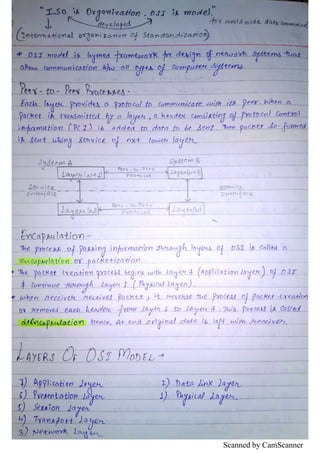 "ISO is Organization. OSI is model"
developed
for world wide data communica
(International organization of Standardization)
* OSI model is layered framework for design of network systems that
allow communication b/w all types of computer systems.
Peer-to-Peer Processes-
Each layer provides a protocol to communicate with its peer. When a
packet is transmitted by a layer, a header consisting of protocol control
information (PCI) is added to data to be sent. Then packet so formed
is sent using service of next lower layer.
System A System B
Layer (N+1) Peer-to-Peer Protocol Layer(N+1)
Service Interface Service Interface
Layer(N) Peer-to-Peer Protocol Layer(N)
Encapsulation-
The process of passing information through layers of OSI is called a
encapsulation or packetization.
• The packet creation process begins with layer 7 (Application layer) of OSI
& continue through layer 1 (Physical Layer).
• When receiver receives packet, it reverse the process of packet creation
or removes each header from layer 1 to layer 7. This process is called
deEncapsulation. Hence, At end original data is left with receiver.
LAYERS OF OSI MODEL →
7) Application Layer 2) Data link Layer
6) Presentation Layer 1) Physical Layer.
5) Session Layer
4) Transport Layer
3) Network Layer
Scanned by CamScanner